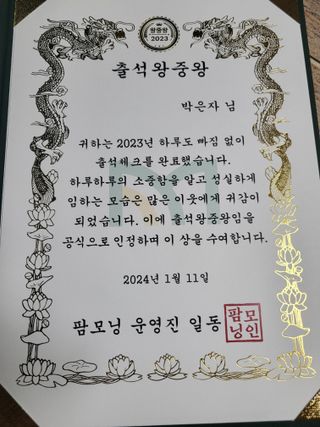 왕중왕
2023
출석왕중왕
박은자 님
귀하는 2023년 하루도 빠짐 없이
출석체크를 완료했습니다.
하루하루의 소중함을 알고 성실하게
임하는 모습은 많은 이웃에게 귀감이
되었습니다. 이에 출석왕중왕임을
공식으로 인정하며 이 상을 수여합니다.
2024년 1월 11일
팜모닝 운영진 일동
팜모
닝인